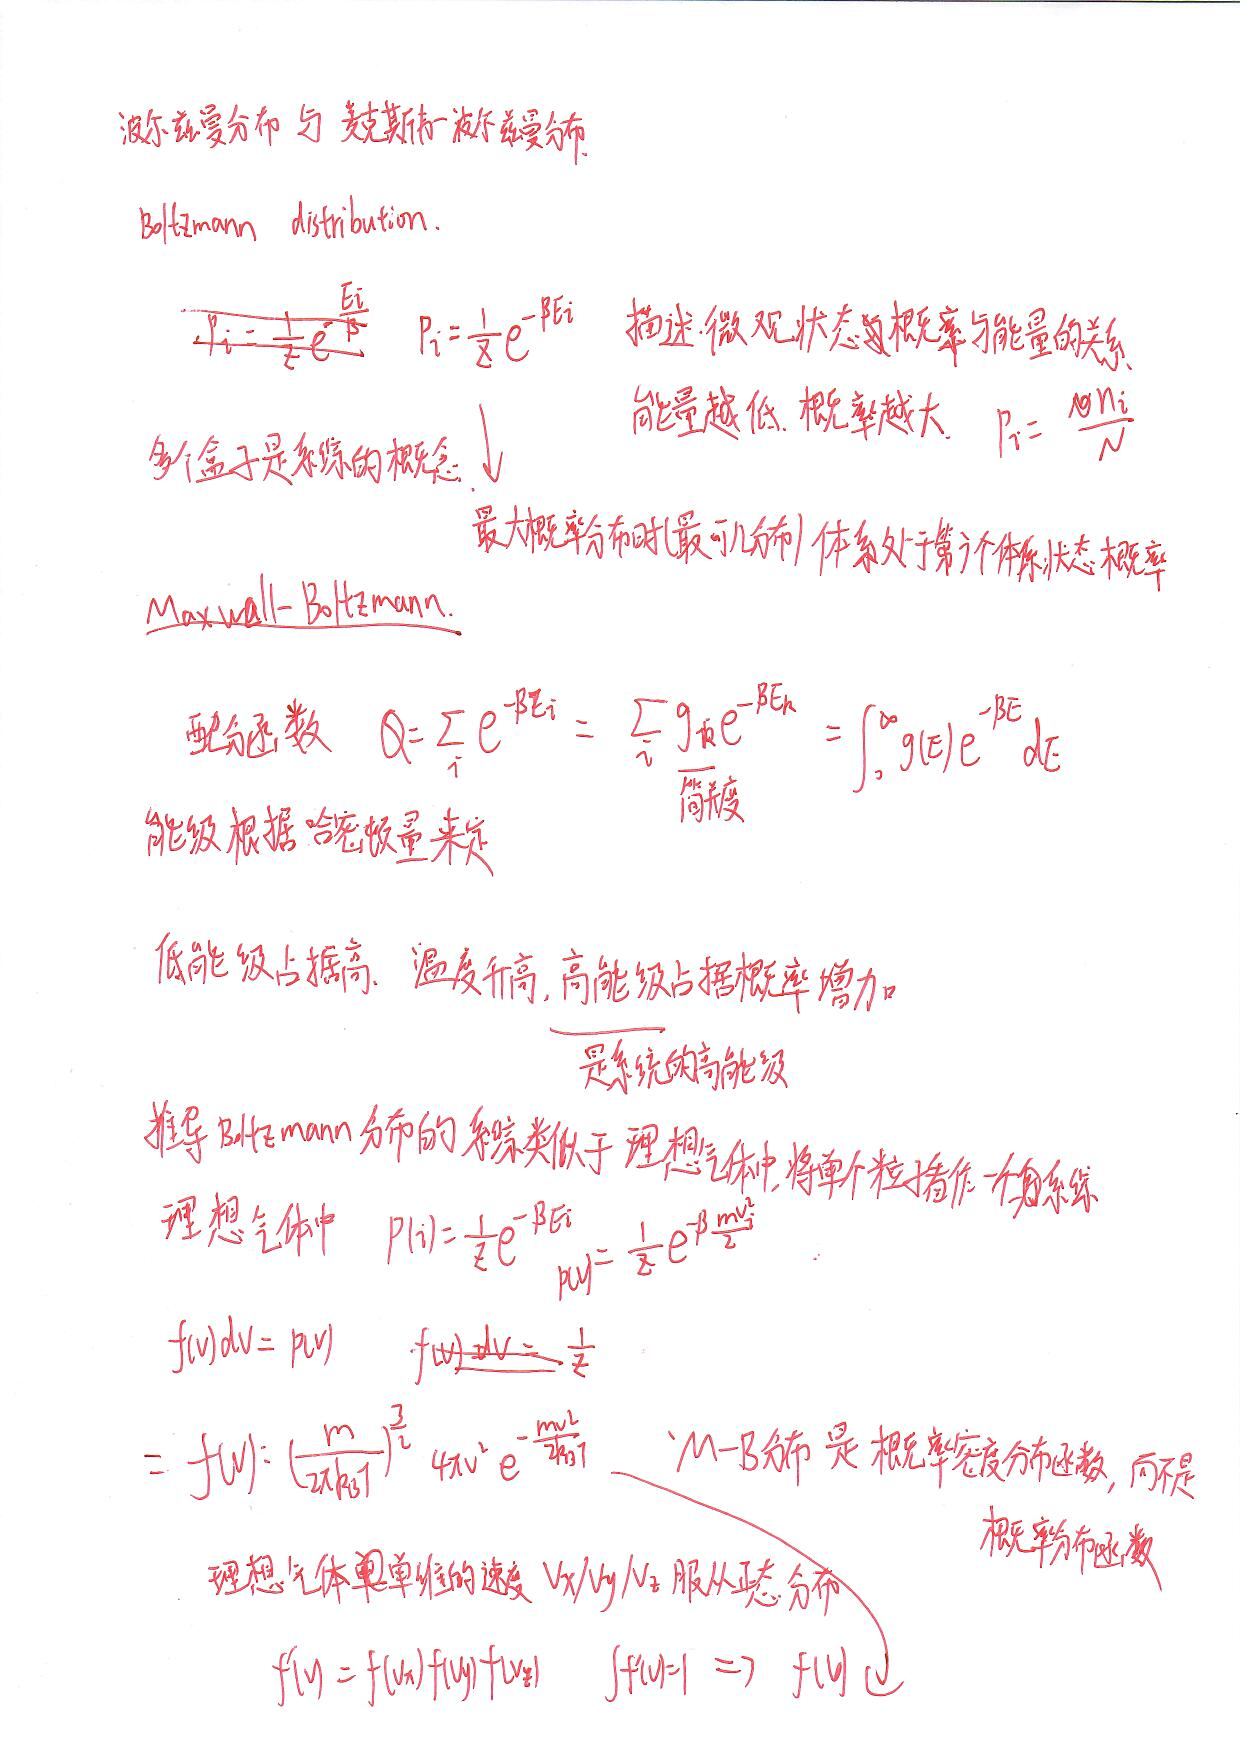 波尔兹曼分布 与 麦克斯韦-波尔兹曼分布.
Boltzmann distribution.
Pi = 1/Z e^(-Ei/β)   Pi = 1/Z e^(-βEi)   描述.微观状态 概率与能量的关系.
能量越低. 概率越大.   Pi = ni/N
多个盒子是系综的概念. ↓
最大概率分布时(最可几分布) 体系处于第i个体系状态概率
Maxwall-Boltzmann.
配分函数   Q = Σ_i e^(-βEi) = Σ_i g e^(-βEn) = ∫_0^∞ g(E) e^(-βE) dE
简并度
能级根据哈密顿量来定
低能级占据高. 温度升高, 高能级占据概率增加。
是系统的高能级
推导Boltzmann分布的系综类似于 理想气体中,将单个粒子看作一个 系综
理想气体中   P(i) = 1/Z e^(-βEi)   p(v) = 1/Z e^(-β mv_i²/2)
f(v)dv = p(v)   f(v) dv = 1/Z
= f(v): (m/2πk_BT)^(3/2) 4πv² e^(-mv²/2k_BT)   M-B分布 是 概率密度分布函数, 而不是
概率分布函数
理想气体 单维的速度 Vx/Vy/Vz 服从正态分布
f(v) = f(Vx) f(Vy) f(Vz)   ∫f(v)=1 => f(v)